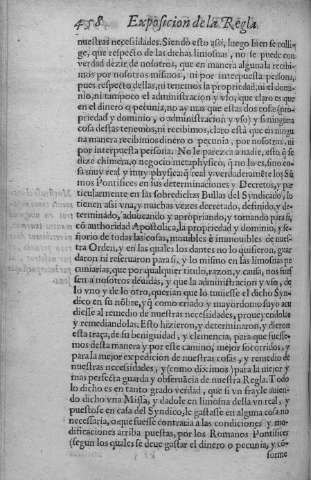 458 Exposicion de la Regla.
nuestras necesidades. Siendo esto assi, luego bien se colli-
ge, que respecto de las dichas limosnas, no se puede con
verdad dezir de nosotros, que en manera alguna recibi-
mos por nosotros mismos, ni por interpuesta persona,
pues respecto dellas, ni tenemos la propriedad, ni el domi-
nio, ni tampoco el administracion y vso, que claro es que
en el dinero o pecunia, no ay mas que estas dos cosas (pro
priedad y dominio, o administracion y vso) y si ninguna
cosa destas tenemos, ni recibimos, claro está que en ningu
na manera recibimos dinero o pecunia, por nosotros, ni
por interpuesta persona. No le parezca a nadie, esto que se
dize chimera, o negocio metaphysico, que no lo es, sino co-
sa muy real y muy physica: que real y verdaderamẽte los Sũ
mos Pontifices en sus determinaciones y Decretos, y par
ticularmente en las sobredichas Bullas del Syndicado, lo
tienen assi vna, y muchas vezes decretado, definido, y de-
terminado, aduocando y apropriando, y tomando para si,
cõ authoridad Apostolica, la propriedad y dominio, y se-
ñorio de todas las cosas, muebles è inmuebles de nues-
tra Orden, y en las quales los dantes no lo quisieron, guar
daron ni reseruaron para si, y lo mismo en las limosnas pe
cuniarias, que por qualquier titulo, razon, y causa, nos fues
sen a nosotros deuidas, y que la administracion y vso, de
lo vno y de lo otro, querian que lo tuuiesse el dicho Syn-
dico en su nõbre, y q̃ como criado y mayordomo suyo acu
diesse al remedio de nuestras necesidades, proueyendolas
y remediandolas. Esto hizieron, y determinaron, y dieron
esta traça, de su benignidad, y clemencia, para que fuesse-
mos desta manera, y por este camino, mejor socorridos, y
para la mejor expedicion de nuestras cosas, y remedio de
nuestras necesidades, y (como diximos) para la mejor y
mas perfecta guarda y obseruãcia de nuestra Regla. Todo
lo dicho es en tanto grado verdad, que si vn frayle auien-
do dicho vna Missa, y dadole en limosna della vn real, y
puestose en casa del Syndico, le gastasse en alguna cosa no
necessaria, o que fuesse contraria a las condiciones y mo-
dificaciones arriba puestas, por los Romanos Pontifices
(segun los quales se deue gastar el dinero o pecunia, y cõ-
forme